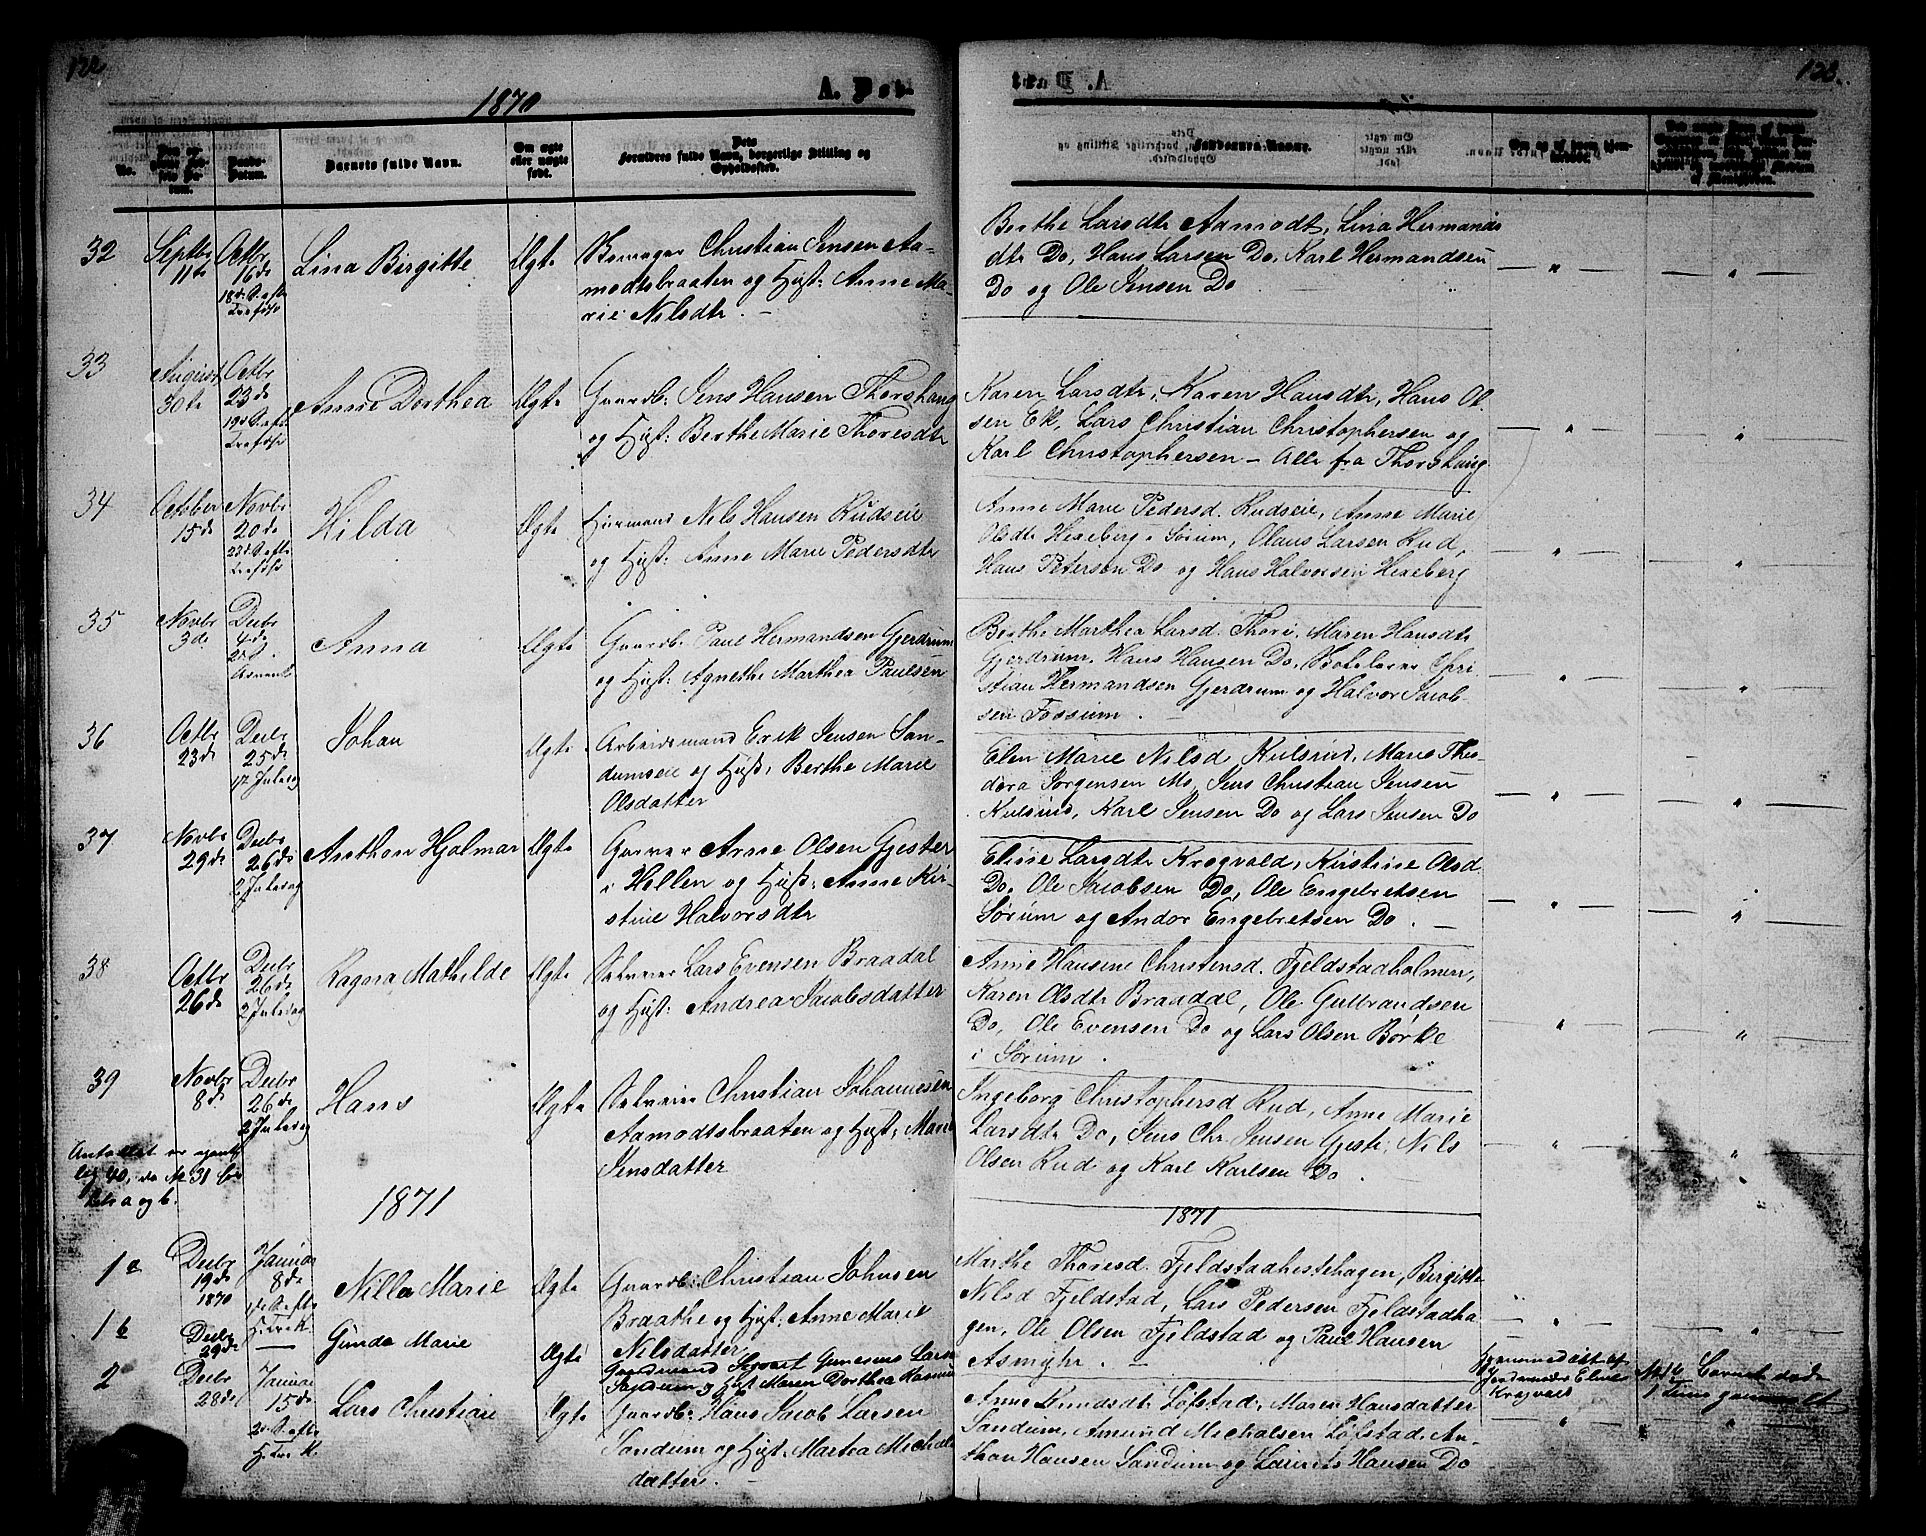 122
1870
A. Døb-
No.
Barnets fulde Navn.
Om ægte eller uægte født.
Forældres fulde Navn, borgerlige Stilling og Opholdssted.
32
Septbr 11te
Octbr 16de
18de S. eft. Trefds
Lina Birgitte
Ægte
Christian Jensen Aa-
modtsbraaten og Hust: Anne Ma-
rie Nilsdtr. —
33
August 30te
Octbr 23de
19de S. eft. Trefds
Anne Dorthea
Ægte
Gaardb: Jens Hansen Thorshaug
og Hust: Berthe Marie Thoresdtr
34
October 15de
Novbr 20de
23de S. eft. Trefds
Hilda
Ægte
Nils Hansen Rudseie
og Hust: Anne Marie Pedersdtr
35
Novbr 3de
Decbr 4de
2de S. Advent
Anna
Ægte
Gaardb: Paul Hermandsen Gjerdrum
og Hust: Agnethe Marthea Paulsen
36
Octbr 23de
Decbr 25de
1ste Juledag
Johan
Ægte
Arbeidsmand Erik Jensen San-
dumseie og Hust: Berthe Marie
Olsdatter
37
Novbr 29de
Decbr 26de
2 Juledag
Anthon Hjalmar
Ægte
Garver Arne Olsen Gjester
i Hellen og Hust: Anne Kir-
stine Halvorsdtr
38
Octbr 26de
Decbr 26de
2 Juledag
Ragna Mathilde
Ægte
Selveier Lars Evensen Braadal
og Hust: Andrea Jacobsdatter
39
Novbr 8de
Decbr 26de
2 Juledag
Hans
Ægte
Selveier Christian Johannesen
Aamodtsbraaten og Hust: Marie
Jensdatter
Antallet er egent-
lig 40, da No 31 er
a og b.
1871
1a
Decbr 19de 1870
Januar 8de
Nilla Marie
Ægte
Gaardb: Christian Johnsen
Braathe og Hust: Anne Marie
Nilsdatter
1b
Decbr 29de
—
Gunda Marie
Ægte
Gaardmand Syvert Larsen
Sandum og Hust Maren Dorthea
2
Decbr 28de
Januar 15de
Lars Christian
Ægte
Gaardb: Hans Jacob Larsen
Sandum og Hust: Martea Michels
datter. —
123.
Faddernes Navne.
Berthe Larsdtr Aamodt, Lina Hermands
dtr Do, Hans Larsen Do, Karl Hermandsen
Do og Ole Jensen Do
Karen Larsdtr, Karen Hansdtr, Hans Ol-
sen Ek, Lars Christian Christophersen og
Karl Christophersen — Alle fra Thorshaug
Anne Marie Pedersd. Rudseie, Anne Marie
Olsdtr Hexeberg i Sørum, Olaus Larsen Rud,
Hans Petersen Do og Hans Halvorsen Hexeberg
Berthe Marthea Larsd. Thori, Maren Hansdtr
Gjerdrum, Hans Hansen Do, Chri-
stian Hermandsen Gjerdrum og Halvor Jacob-
sen Fossum. —
Elen Marie Nilsd Kulsrud, Marie Theo-
dora Jørgensen Mo, Jens Christian Jensen
Kulsrud, Karl Jensen Do og Lars Jensen Do
Eline Larsdtr Krogvold, Kirstine Olsd
Do, Ole Jacobsen Do, Ole Engebretsen
Sørum og Andor Engebretsen Do. —
Anne Hansine Christensd. Fjeldstadholmen,
Karen Olsdtr Braadal, Ole Gulbrandsen
Do, Ole Evensen Do og Lars Olsen Børke
i Sørum.
Ingeborg Christophersd Rud, Anne Marie
Larsdtr Do, Jens Chr. Jensen Gjesti, Nils
Olsen Rud og Karl Karlsen Do.
1871
Marthe Thoresd. Fjeldstadhestehagen, Birgitte
Nilsd Fjeldstad, Lars Pedersen Fjeldstadha-
gen, Ole Olsen Fjeldstad og Paul Hansen
Asmyhr. —
Hjemmedøbt af Jordemoder Eline Krogvold
Barnet døde 1 Time gammelt
Anne Knudsdtr Løfstad, Maren Hansdatter
Sandum, Amund Michalsen Løfstad, An-
thon Hansen Sandum og Laurits Hansen Do